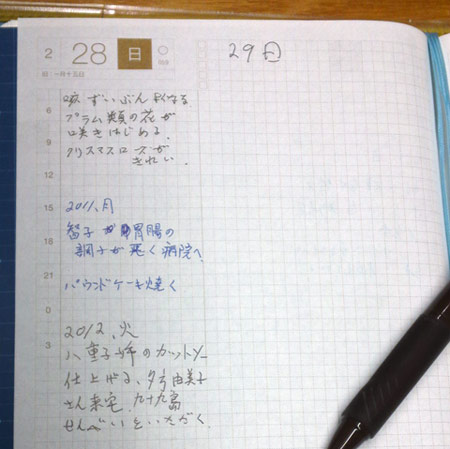 2 28 日
旧 一月十五日
29日
咳ずいぶんよくなる
プラム類の花が
咲きはじめる。
クリスマスローズが
きれい。
2011、月
智子が胃腸の
調子が悪く病院へ。
パウンドケーキ焼く
2012、火
八重子姉のカットソー
仕上げる、夕方由美子
さん来宅。九十九島
せんぺいをいただく。
6
9
12
15
18
21
0
3